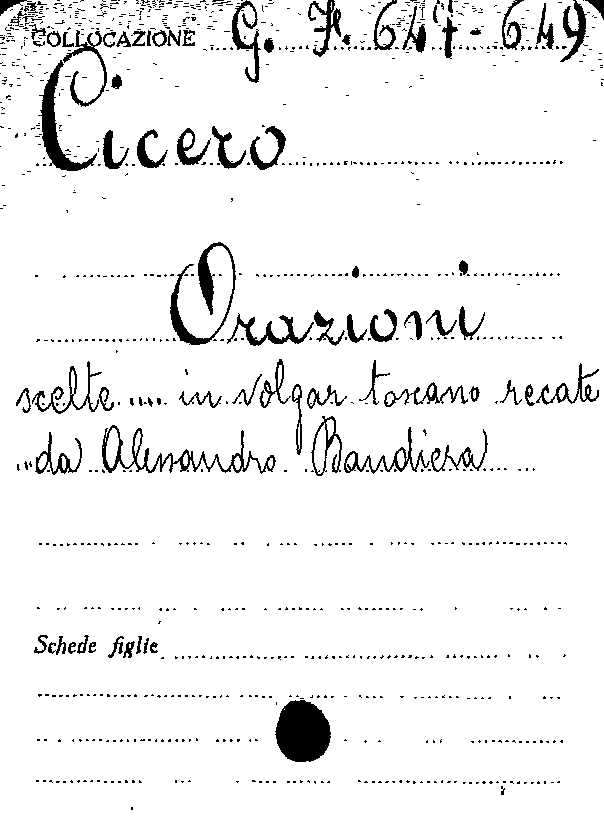 COLLOCAZIONE G. H. 647-649
Cicero
Orazioni
scelte .... in volgar toscano recate
... da Alessandro Bandiera
Schede figlie